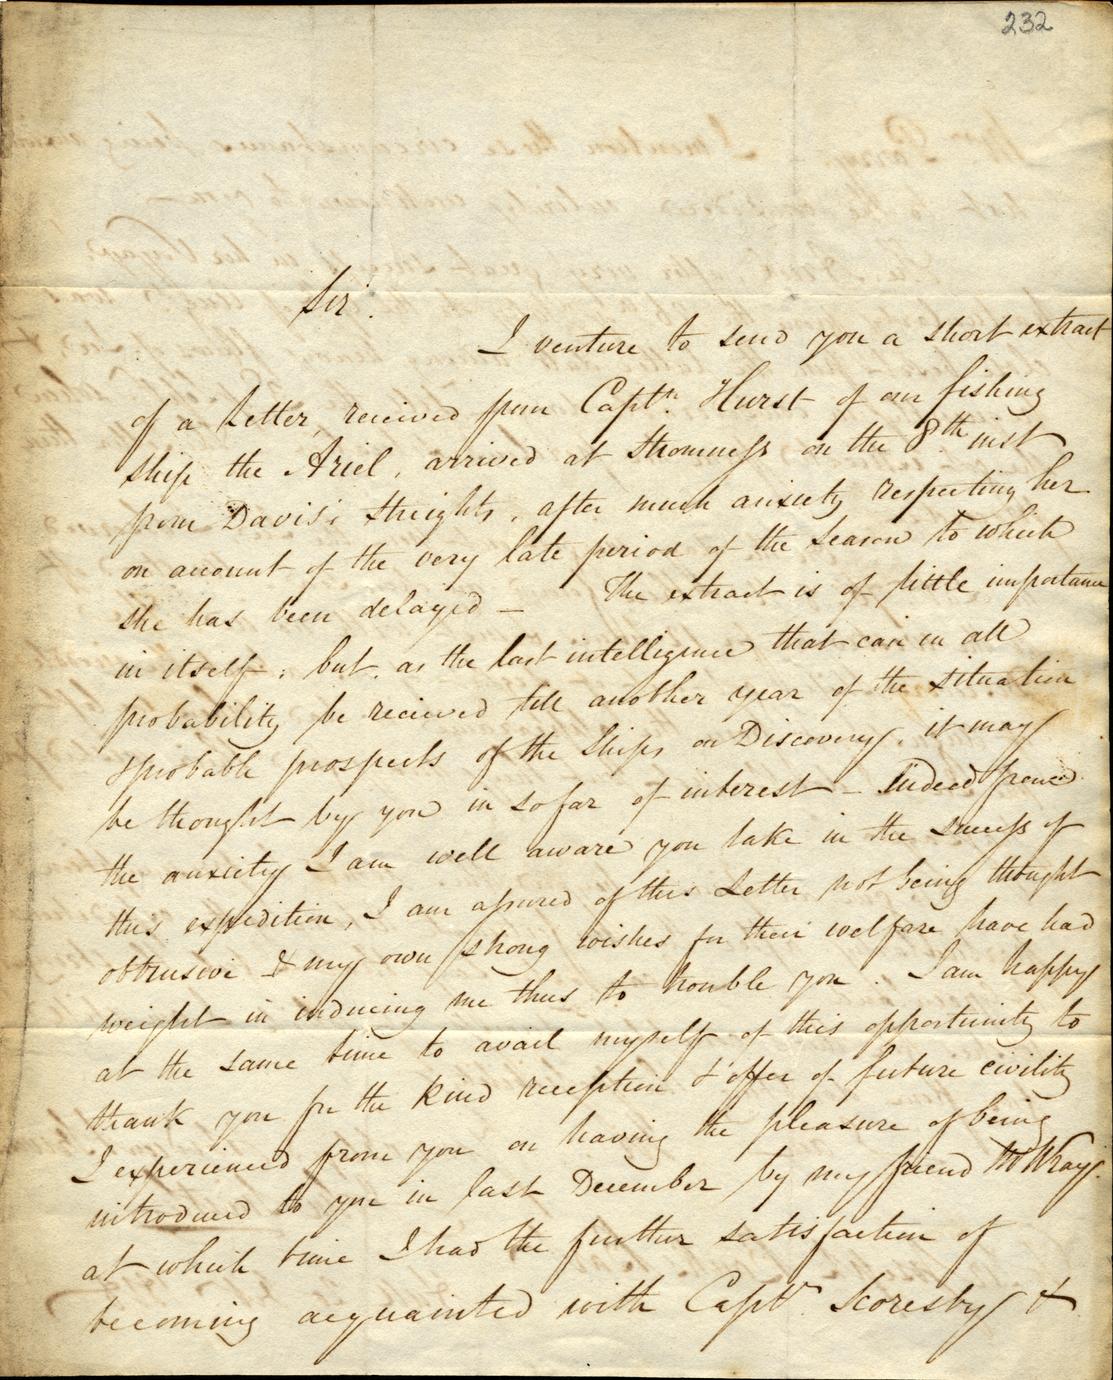 232
Sir.
I venture to send you a short extract
of a Letter, recieved from Captn. Hurst of our fishing
ship the Ariel, arrived at Stromness on the 8th. inst
from Davis's Streights, after much anxiety respecting her
on account of the very late period of the Season to which
she has been delayed – The extract is of little importance
in itself; but, as the last intelligence that can in all
probability be recieved till another year of the situation
& probable prospects of the Ships on Discovery, it may
be thought by you in so far of interest – Indeed from
the anxiety I am well aware you take in the success of
this expedition, I am assured of this Letter not being thought
obtrusive & my own strong wishes for their welfare have had
weight in inducing me thus to trouble you. I am happy
at the same time to avail myself of this opportunity to
thank you for the kind reception & offer of future civility
I experienced from you on having the pleasure of being
introduced to you in last December by my friend Mr Wray.
at which time I had the further satisfaction of
becoming acquainted with Captn. Scoresby &